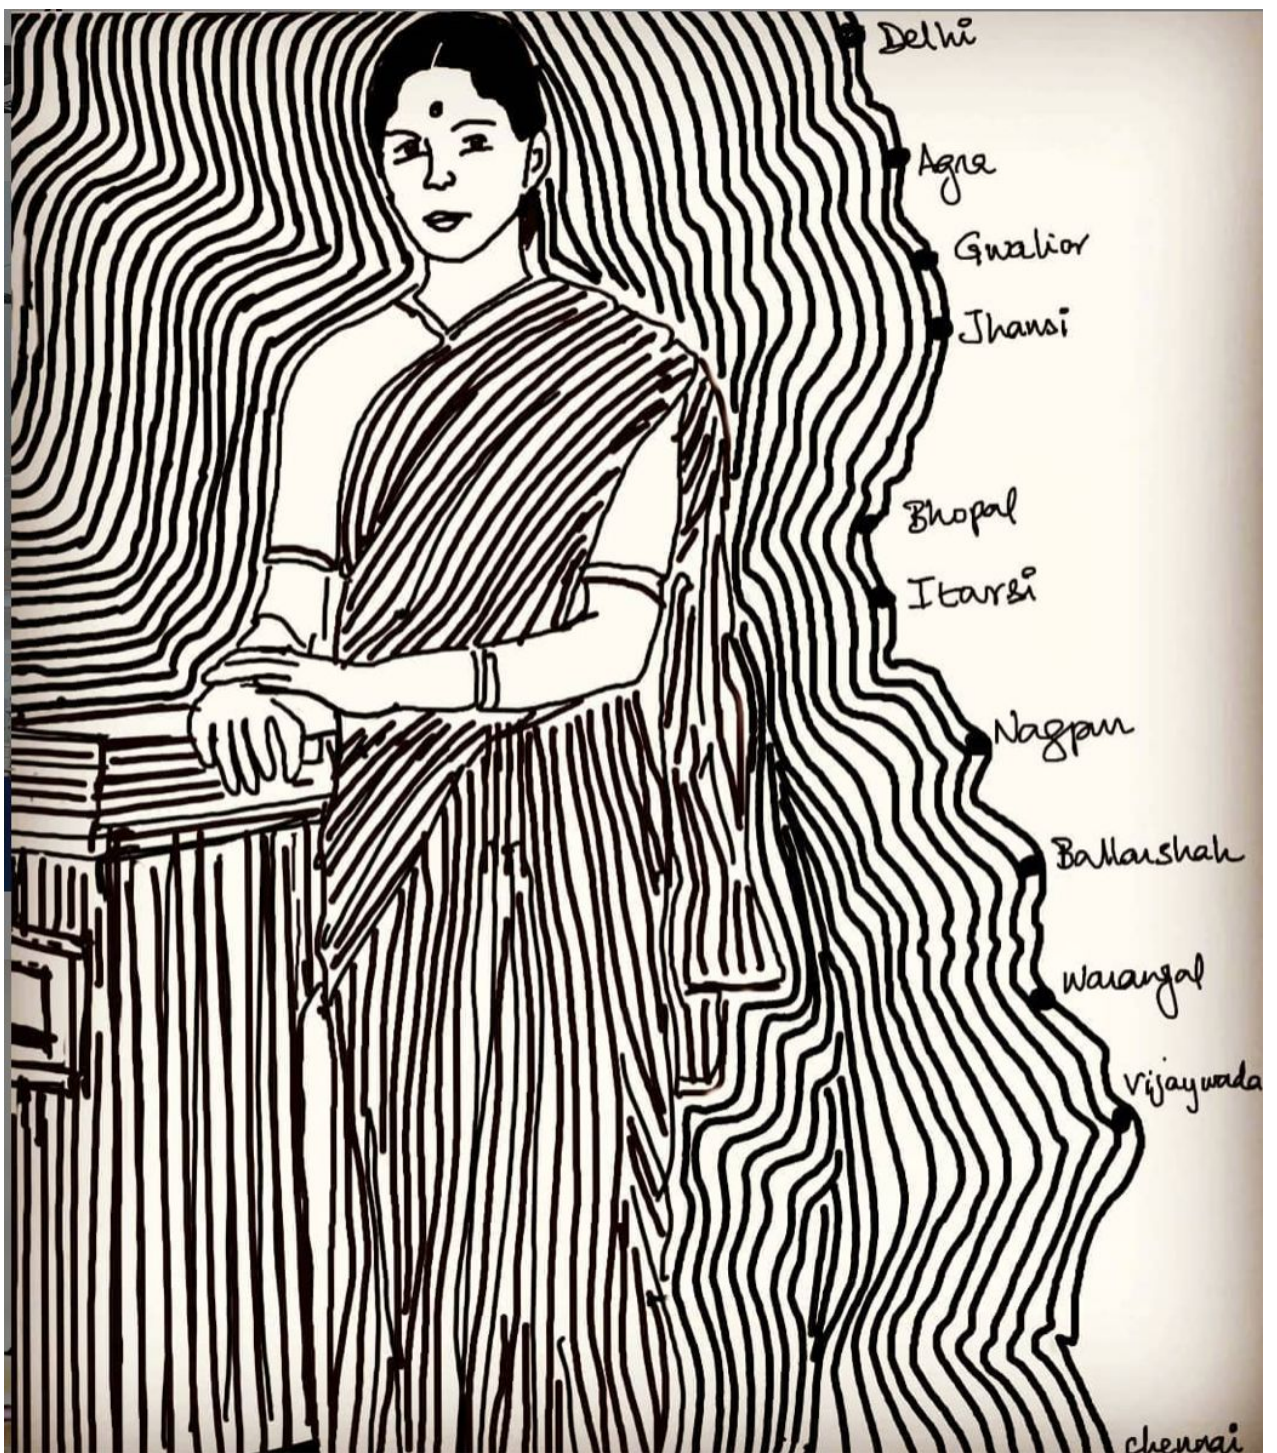 Delhi
Agra
Gwalior
Jhansi
Bhopal
Itarsi
Nagpur
Ballarshah
Warangal
Vijaywada
chennai